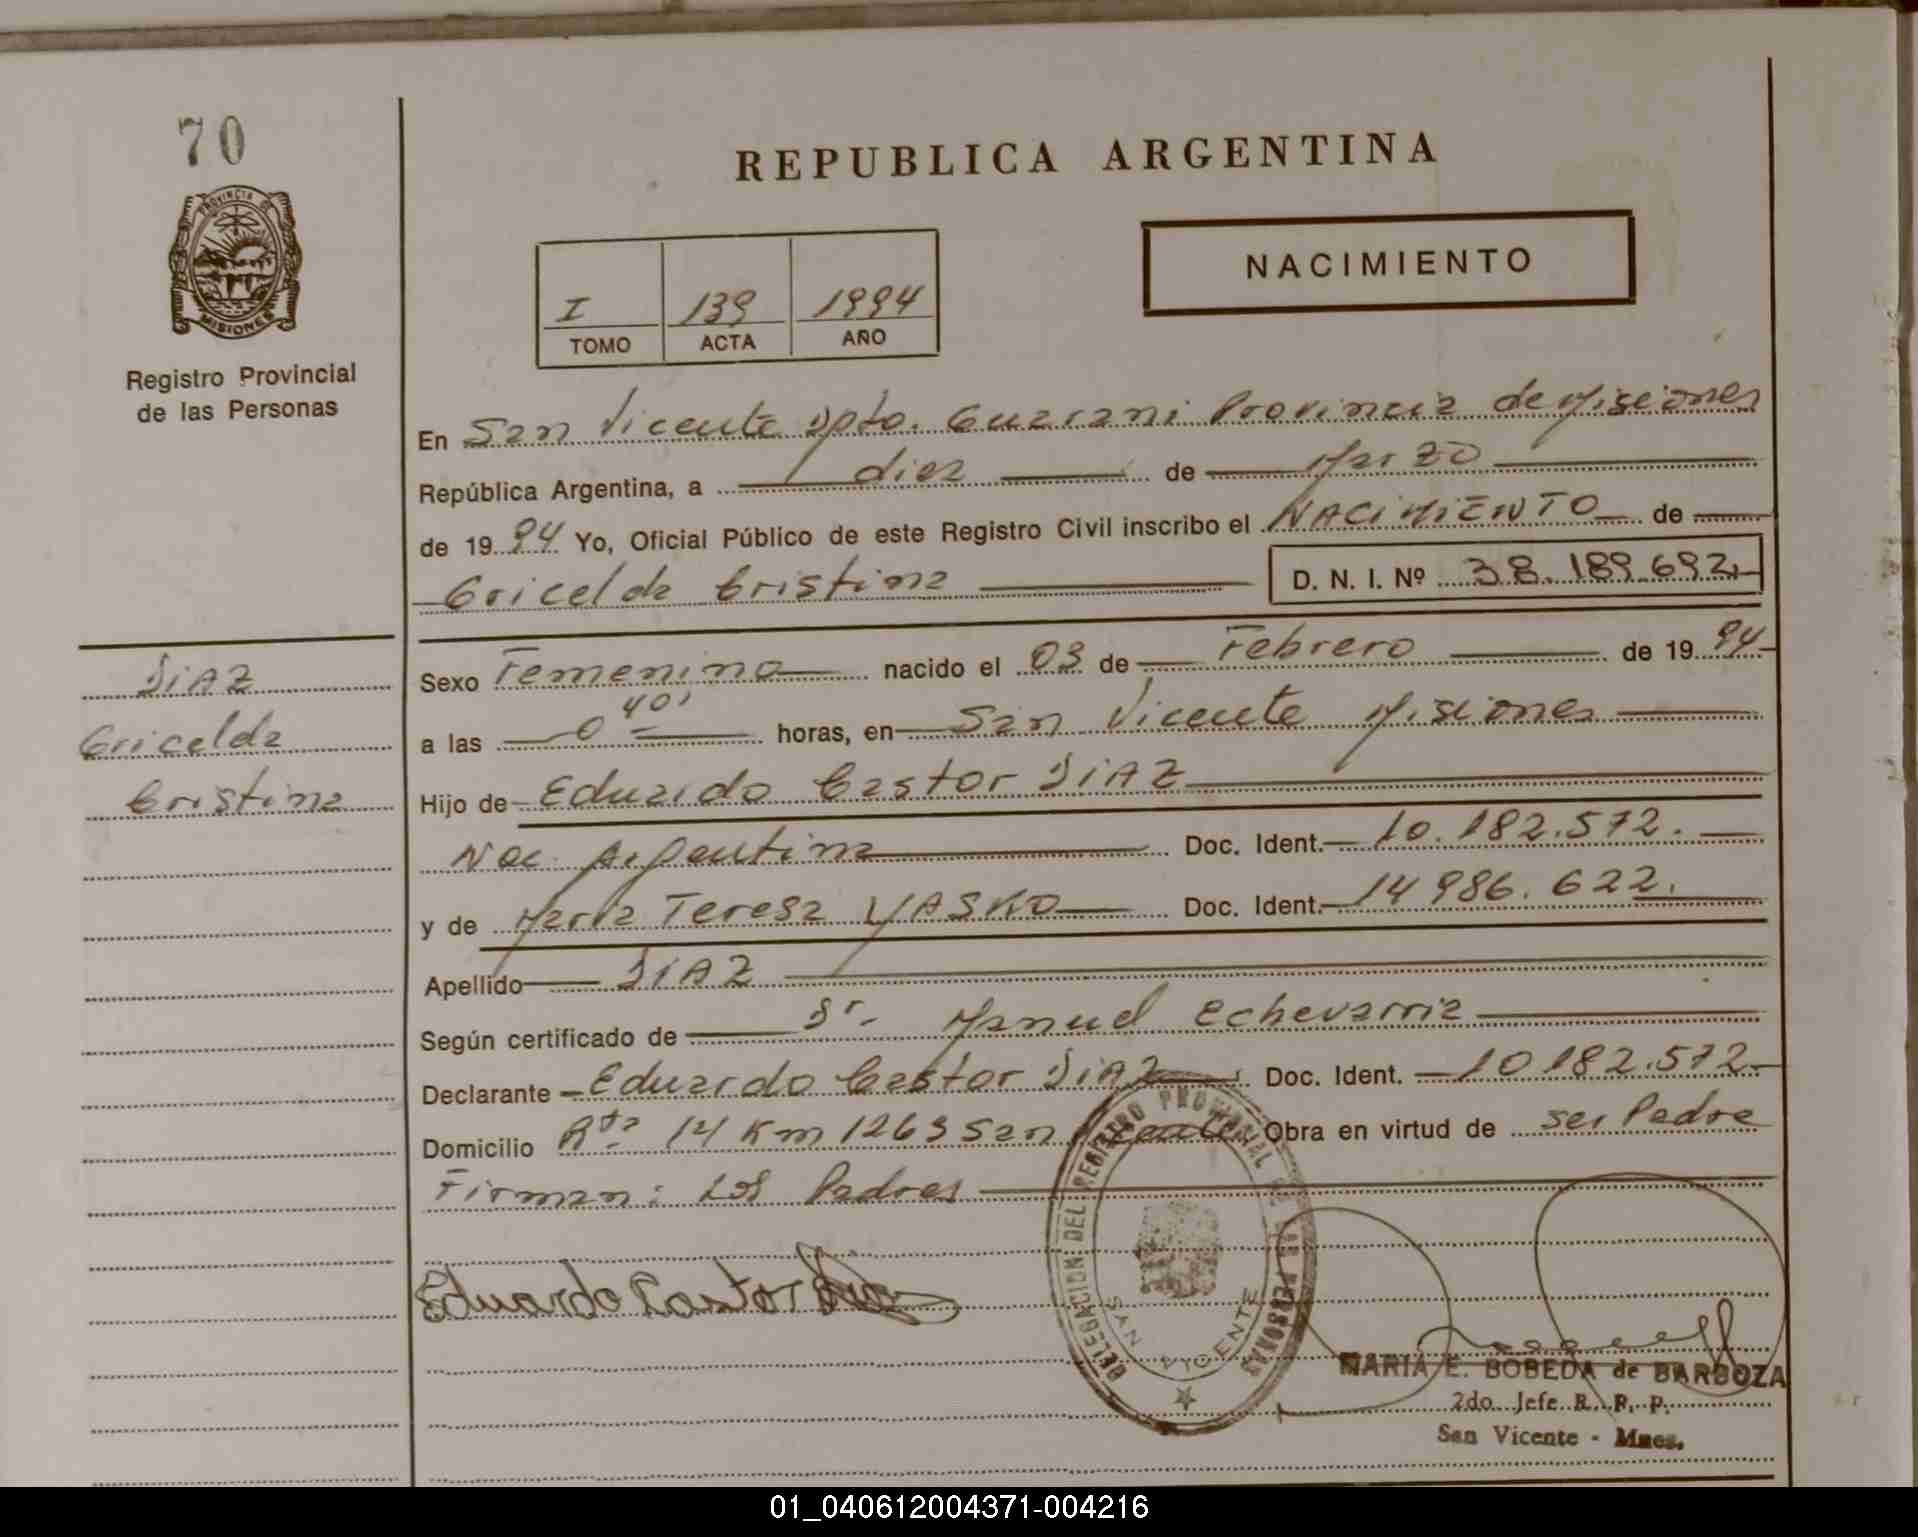 70
PROVINCIA DE
MISIONES
Registro Provincial
de las Personas
REPUBLICA ARGENTINA
NACIMIENTO
I 139 1994
TOMO ACTA AÑO
En San Vicente Dpto. Guarani Provincia de Misiones
República Argentina, a diez de Marzo
de 1994 Yo, Oficial Público de este Registro Civil inscribo el NACIMIENTO de
Gricelda Cristina D. N. I. Nº 38.189.692.
DIAZ
Gricelda
Cristina
Sexo Femenino nacido el 03 de Febrero de 1994
a las 0 40' horas, en San Vicente Misiones
Hijo de Eduardo Castor DIAZ
Nac. Argentina Doc. Ident. 10.182.572.
y de Maria Teresa YASKO Doc. Ident. 14 986.622.
Apellido DIAZ
Según certificado de Dr. Manuel Echevarria
Declarante Eduardo Castor DIAZ Doc. Ident. 10 182.572.
Domicilio Rta 14 Km 1263 San Vicente Obra en virtud de ser Padre
Firman: Los Padres
Eduardo Castor Diaz
DELEGACION DEL REGISTRO PROVINCIAL DE LAS PERSONAS
SAN VICENTE
MARIA E. BOBEDA de BARBOZA
2do. Jefe R. P. P.
San Vicente - Mnes.
01_040612004371-004216